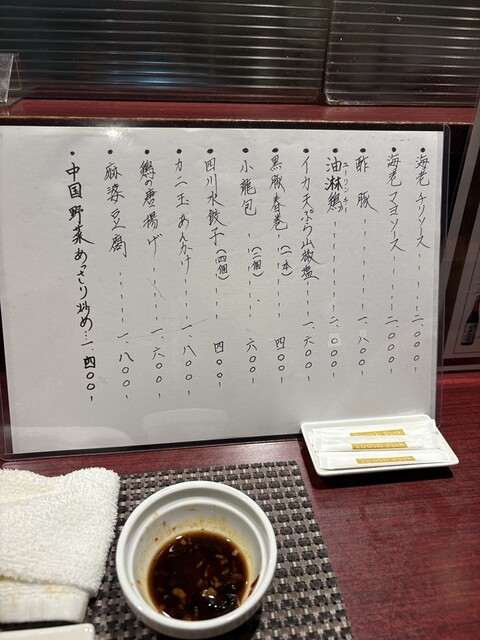 ・海老チリソース・・・・二.〇〇〇-
・海老マヨソース・・・・二.〇〇〇-
・酢豚・・・・・一.八〇〇-
・油淋鶏・・・・二.〇〇〇-
ユーリンチー
・イカ天ぷら山椒塩・・・一.六〇〇-
・黒豚春巻(一本)・・・四〇〇-
・小籠包・・(二個)・・・六〇〇-
・四川水餃子(四個)・・・四〇〇-
・カニ玉あんかけ・・・・一.八〇〇-
・鶏の唐揚げ・・・・一.六〇〇-
・麻婆豆腐・・・・・一.八〇〇-
・中国野菜あっさり炒め・・一.四〇〇-